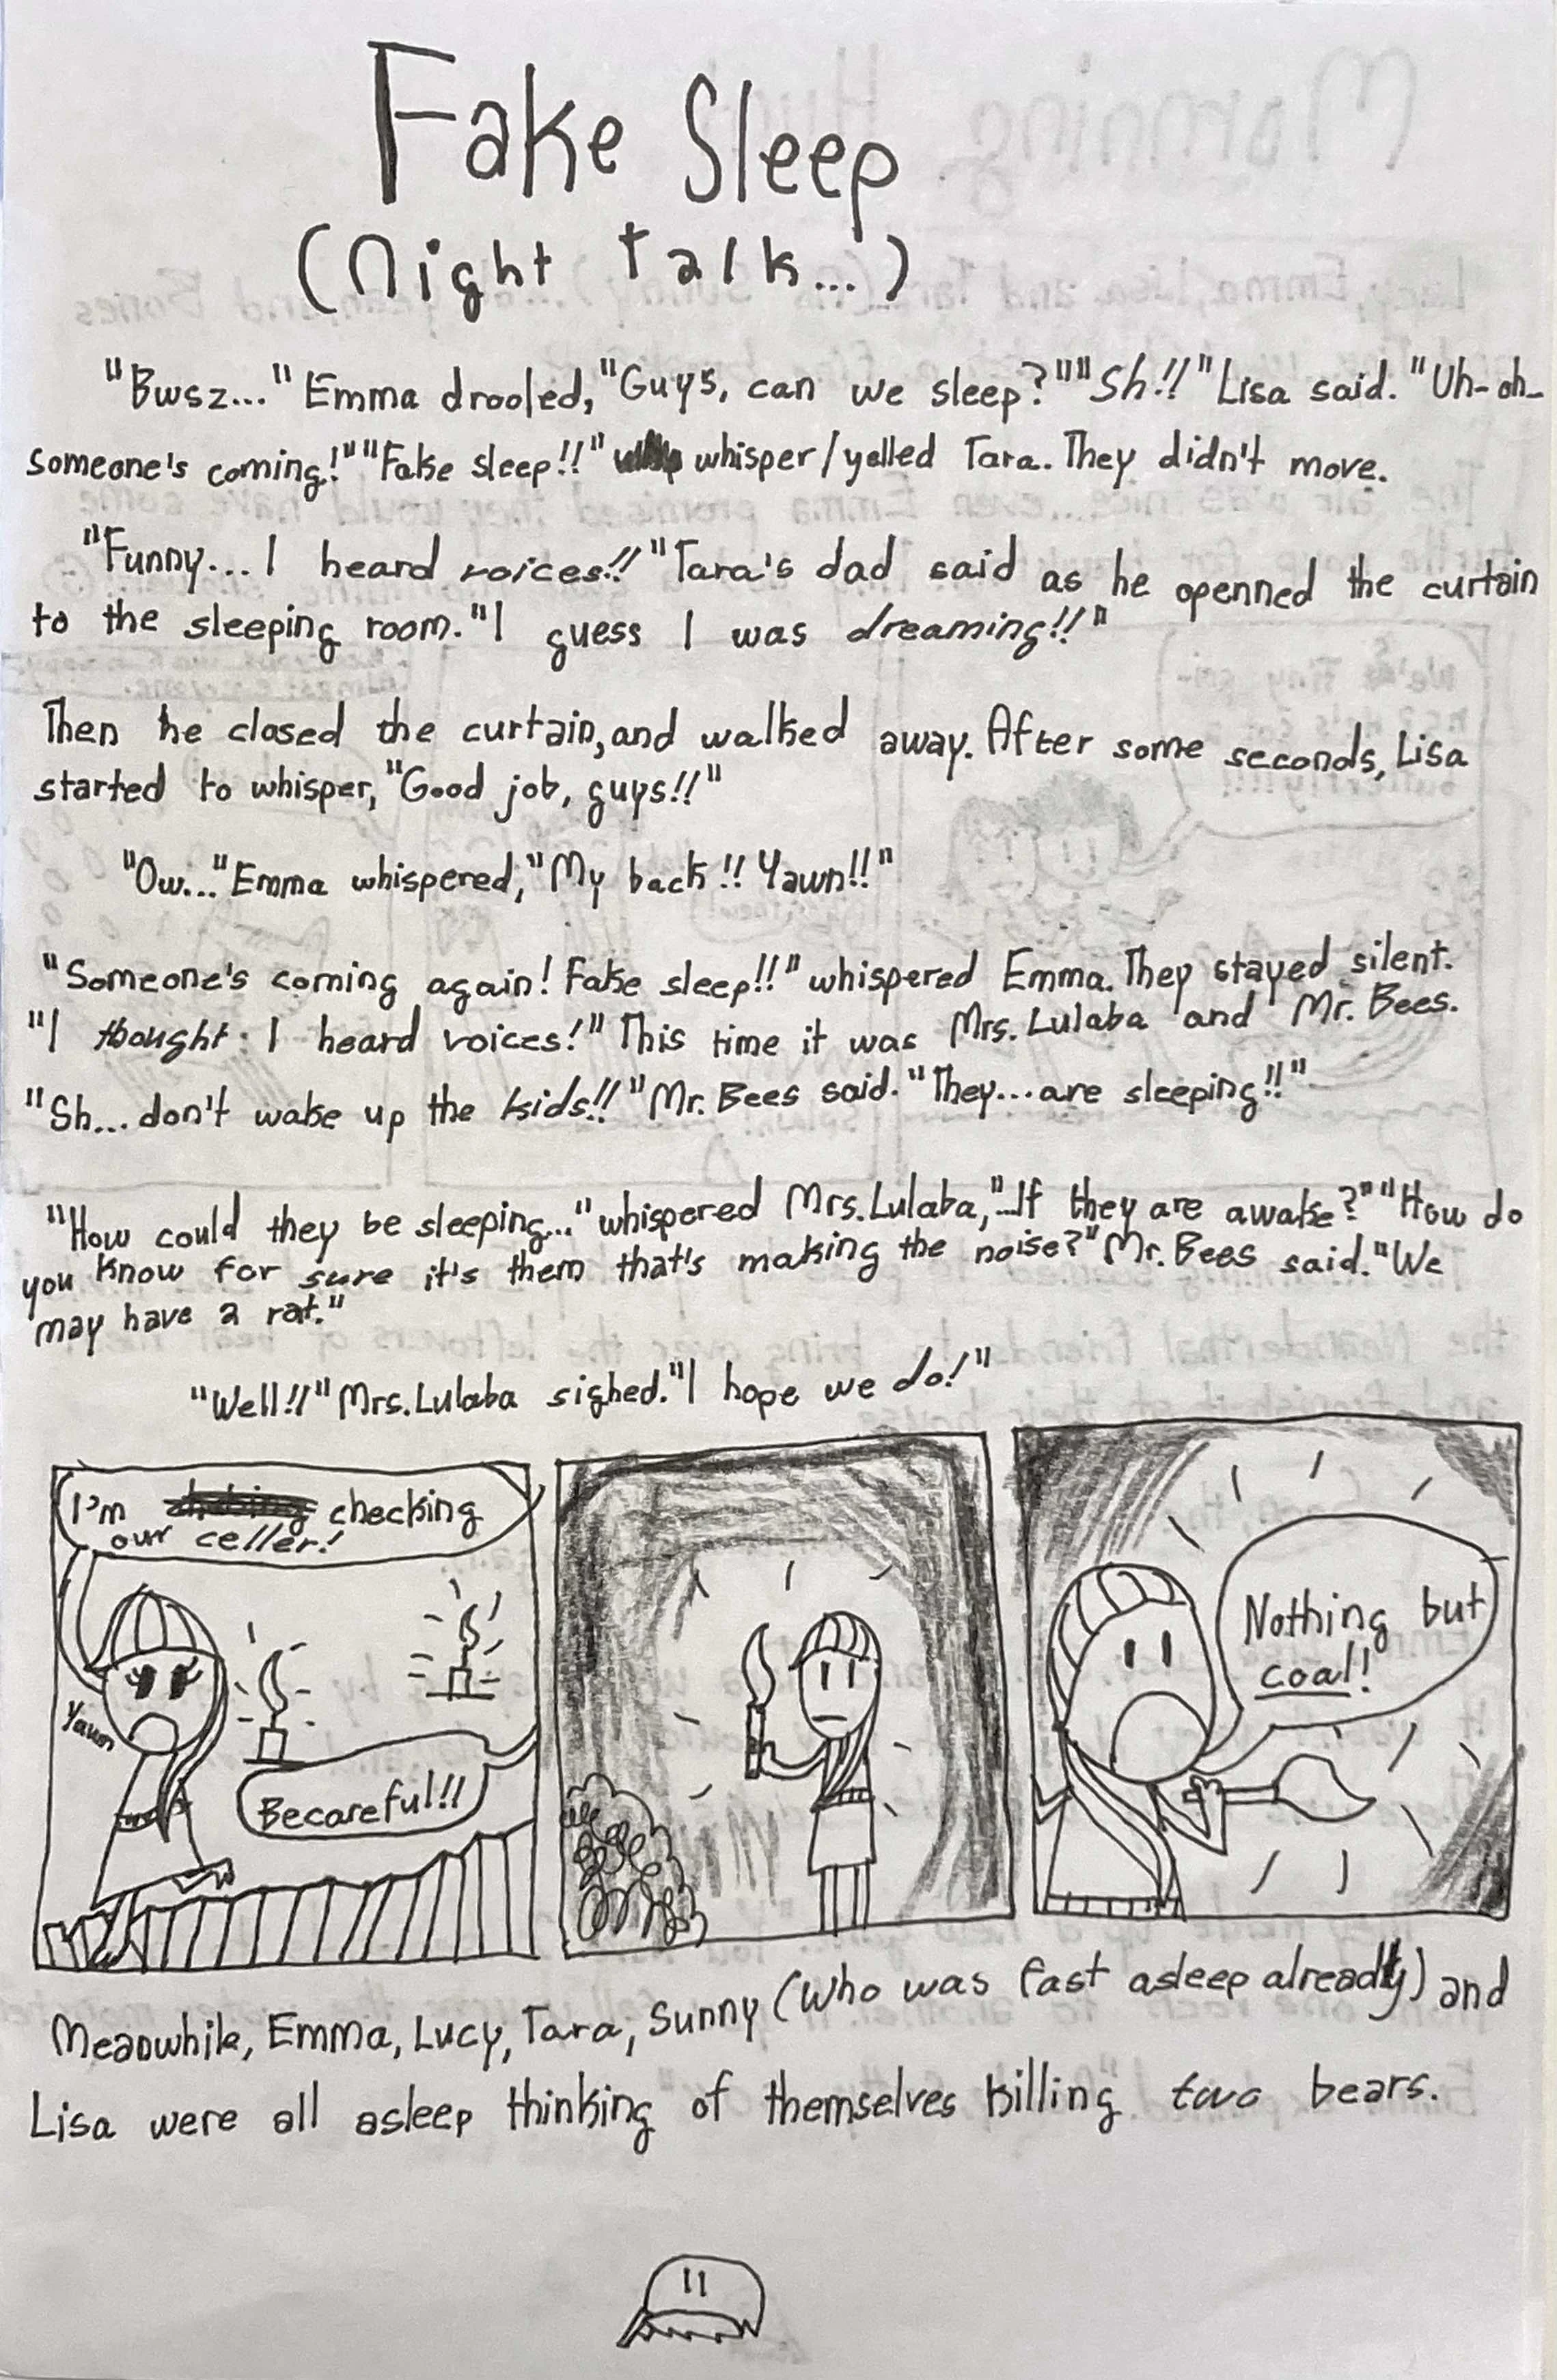 Fake Sleep
(Night Talk...)
"Bwsz..." Emma drooled, "Guys, can we sleep?" "Sh!!" Lisa said. "Uh-oh-
someone's coming!" "Fake sleep!!" whisper/yelled Tara. They didn't move.
"Funny... I heard voices!!" Tara's dad said as he openned the curtain
to the sleeping room. "I guess I was dreaming!!"
Then he closed the curtain, and walked away. After some seconds, Lisa
started to whisper, "Good job, guys!!"
"Ow..." Emma whispered, "My back!! Yawn!!"
"Someone's coming again! Fake sleep!!" whispered Emma. They stayed silent.
"I thought I heard voices!" This time it was Mrs. Lulaba and Mr. Bees.
"Sh... don't wake up the kids!!" Mr. Bees said. "They... are sleeping!!"
"How could they be sleeping..." whispered Mrs. Lulaba, "...If they are awake?" "How do
you know for sure it's them that's making the noise?" Mr. Bees said. "We
may have a rat."
"Well!!" Mrs. Lulaba sighed. "I hope we do!"
I'm checking
our celler!
Yawn
Becareful!!
Nothing but
coal!
Meanwhile, Emma, Lucy, Tara, Sunny (Who was fast asleep already) and
Lisa were all asleep thinking of themselves killing two bears.